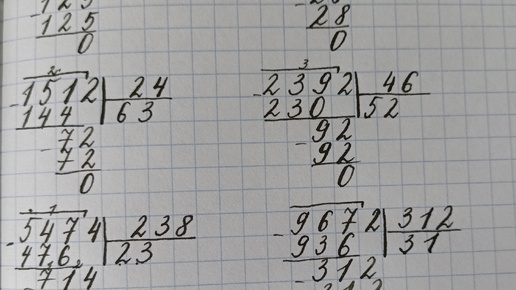 125
125 28
0 0
1512 24 2392 46
144 63 230 52
72 92
72 92
0 0
5474 238 9672 312
476 23 936 31
714 312